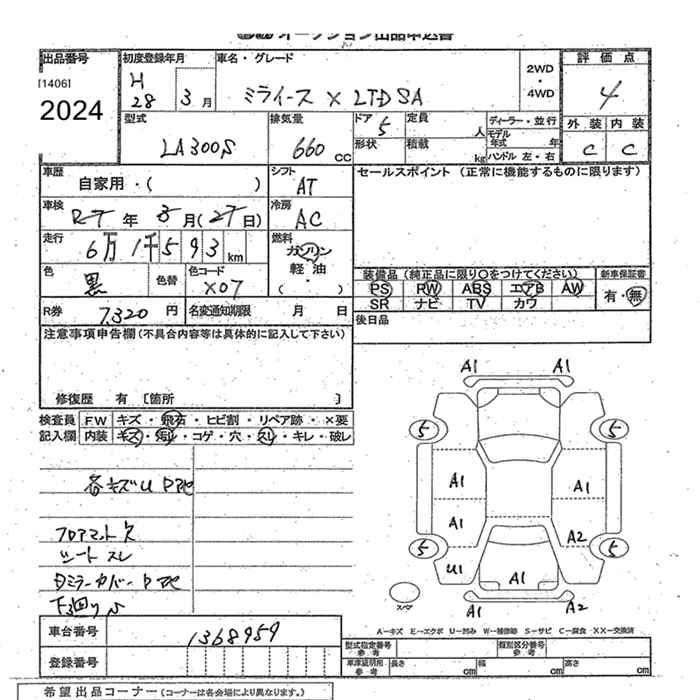 オークション出品申込書
出品番号 初度登録年月 車名・グレード 評価点
[1406] 2WD・4WD
2024 H28 3月 ミライース X LTD SA 4
型式 排気量 ドア 定員 ディーラー・並行 外装 内装
LA300S 660cc 5 人 モデル年式 年 C C
形状 積載 kg ハンドル 左・右
車歴 シフト セールスポイント (正常に機能するものに限ります)
自家用・( ) AT
車検 冷房
R7年 3月(27日) AC
走行 燃料
6万1千593km ガソリン
軽油・( )
色 色替 色コード 装備品(純正品に限り○をつけてください) 新車保証書
黒 X07 PS RW ABS エアB AW 有・無
SR ナビ TV カワ
R券 7,320円 名変通知期限 月 日 後日品
注意事項申告欄(不具合内容等は具体的に記入して下さい)
修復歴 有 [箇所 ]
検査員 FW キズ・飛石・ヒビ割・リペア跡・×要
記入欄 内装 キズ・汚レ・コゲ・穴・スレ・キレ・破レ
各キズU
フロアマット欠
シート スレ
下回りサ
A1 A1
5 5
A1 A1
A1 A2
5 5
U1 A1
スペア A1 A2
A―キズ E―エクボ U―凹み W―補修跡 S―サビ C―腐食 XX―交換済
車台番号 1368959
型式指定番号参考 類別区分番号参考
登録番号 車庫証明用参考 長さ cm 幅 cm 高さ cm
希望出品コーナー(コーナーは各会場により異なります。)